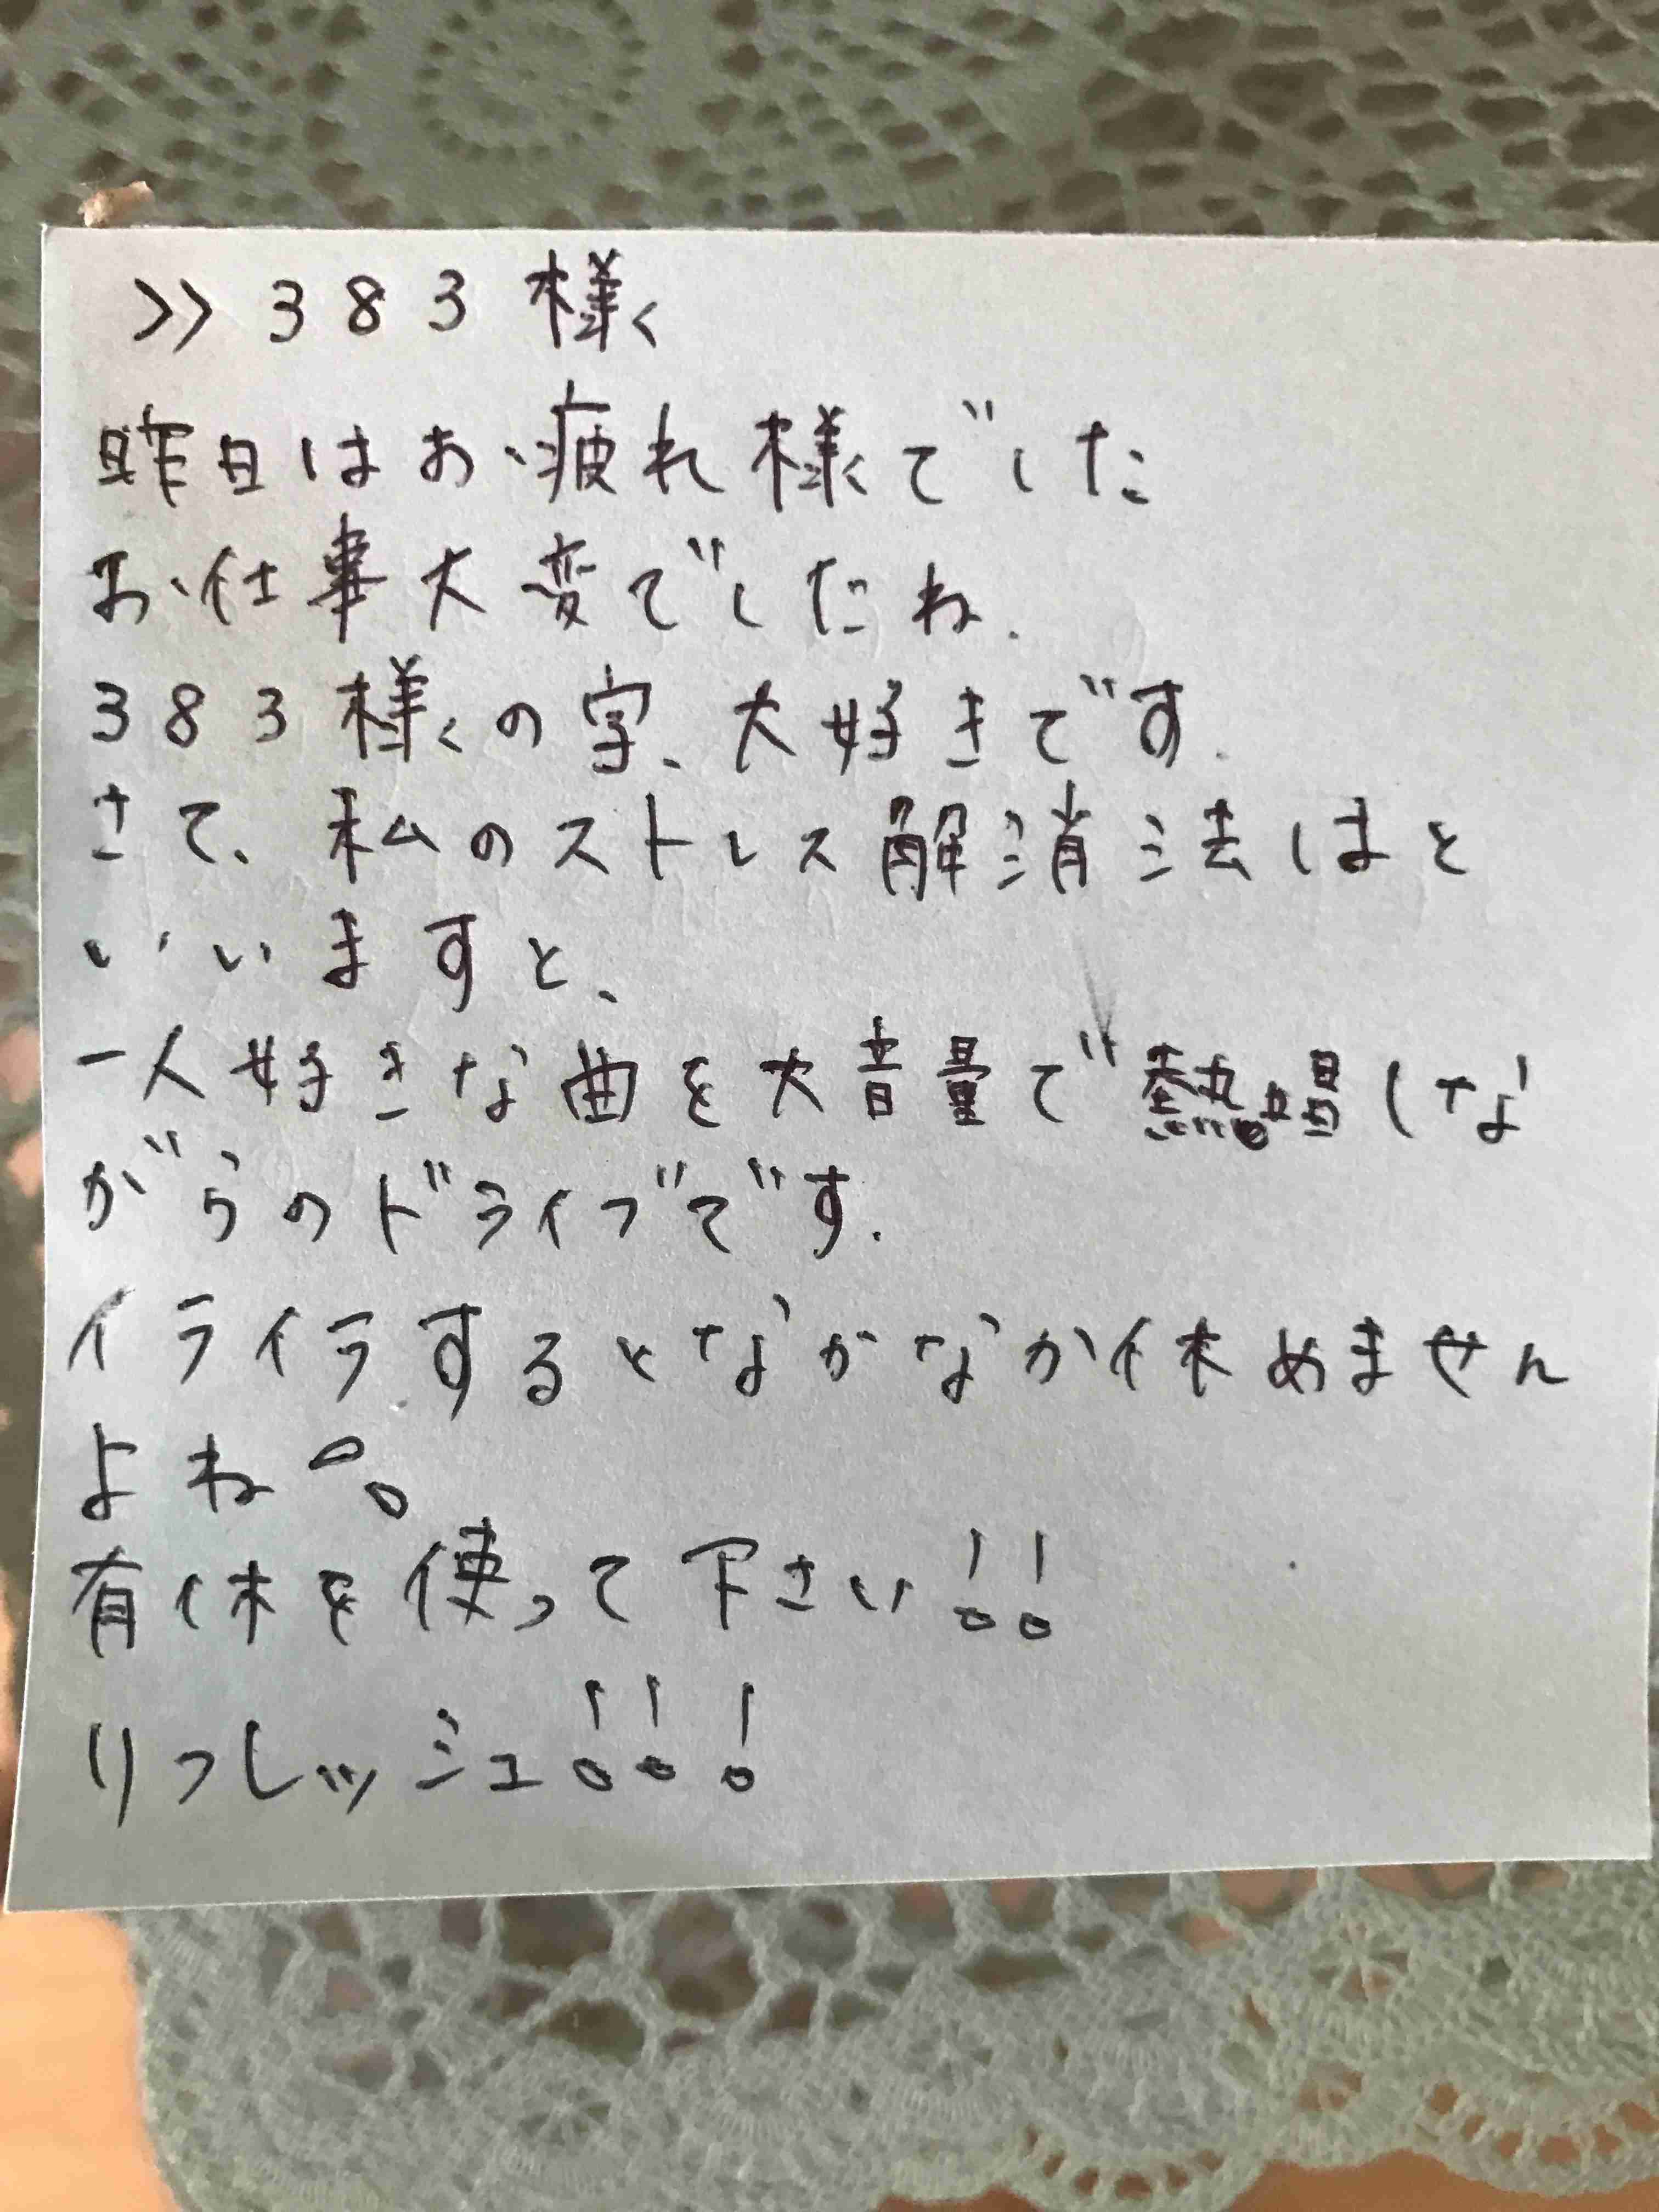 >>383様
昨日はお疲れ様でした
お仕事大変でしたね.
383様の字、大好きです.
さて、私のストレス解消法はと
いいますと、
一人好きな曲を大音量で熱唱しな
がらのドライブです.
イライラするとなかなか休めません
よね。。
有休を使って下さい!!
リフレッシュ!!!